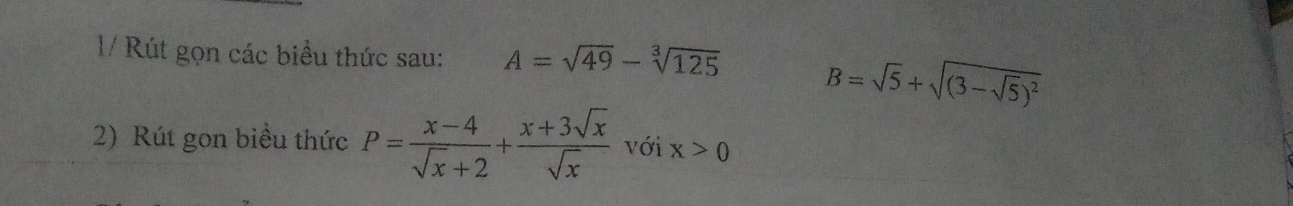 1/ Rút gọn các biểu thức sau: A = √49 − ∛125 B = √5 + √((3 − √5)²)
2) Rút gon biểu thức P = (x − 4)/(√x + 2) + (x + 3√x)/√x với x > 0